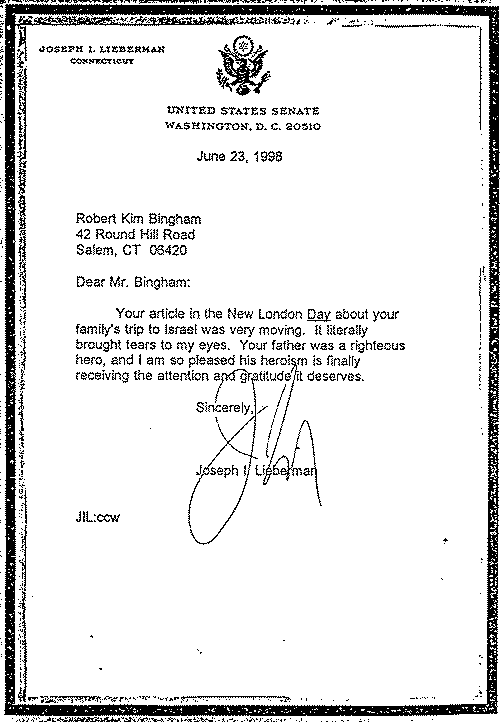 JOSEPH I. LIEBERMAN
CONNECTICUT
UNITED STATES SENATE
WASHINGTON, D. C. 20510
June 23, 1998
Robert Kim Bingham
42 Round Hill Road
Salem, CT 06420
Dear Mr. Bingham:
Your article in the New London Day about your
family's trip to Israel was very moving. It literally
brought tears to my eyes. Your father was a righteous
hero, and I am so pleased his heroism is finally
receiving the attention and gratitude it deserves.
Sincerely,
Joseph I. Lieberman
JIL:ccw